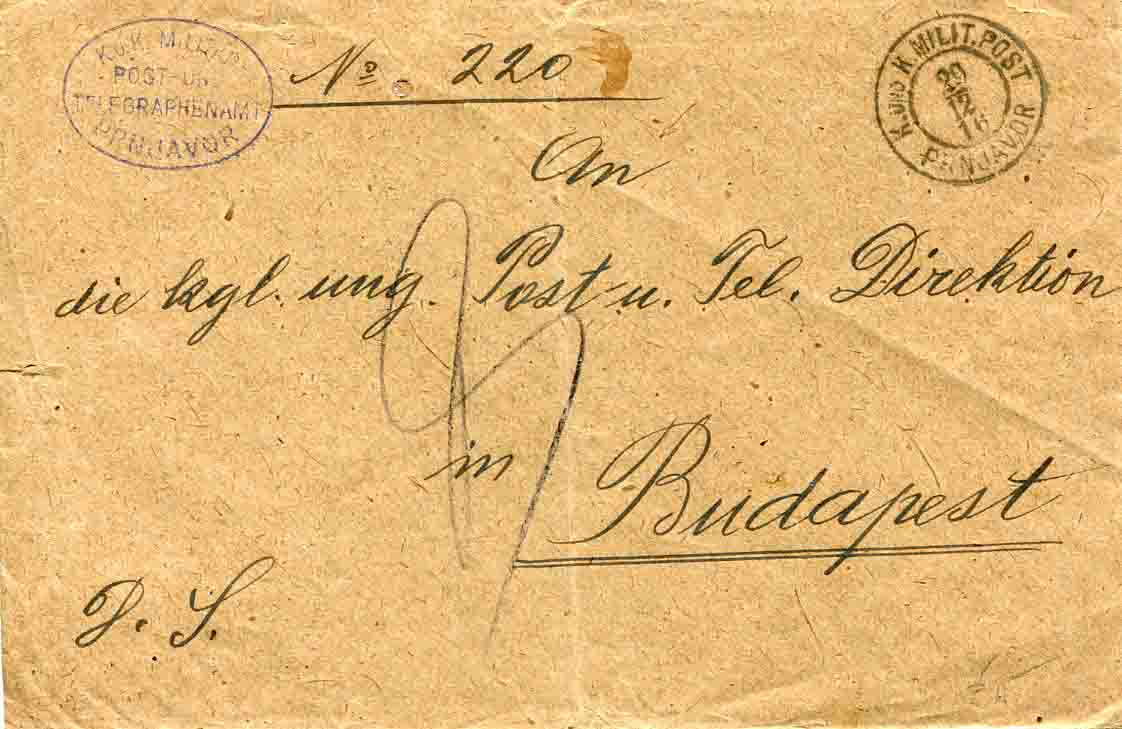 K.u.K. MILITÄR
POST-UN
TELEGRAPHENAMT
PRNJAVOR
No. 220
K. UND K. MILIT. POST
20
12
16
PRNJAVOR
An
die kgl. ung. Post u. Tel. Direktion
in Budapest
D. S.